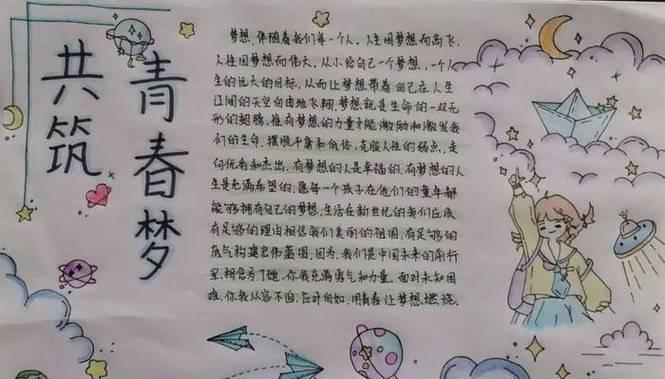 共筑
青春梦
梦想,伴随着我们每一个人,人生因梦想而高飞,
人性因梦想而伟大,从小给自己一个梦想,一个人
生的远大的目标,从而让梦想带着自己在人生
辽阔的天空自由地飞翔,梦想就是生命的一双无
形的翅膀,惟有梦想的力量才能激励和激发我
们的生命,摆脱平庸和低俗,克服人性的弱点,走
向优秀和杰出,有梦想的人是幸福的,有梦想的人
生是充满希望的,愿每一个孩子在他们的童年都
能够拥有自己的梦想,生活在新世纪的我们应该
有足够的理由相信我们美丽的祖国,有足够的
底气构建宏伟蓝图,因为,我们是中国未来的前行
军,相信为了她,你我充满勇气和力量,面对未知困
难,你我从容不迫,应对自如,用青春让梦想燃烧.